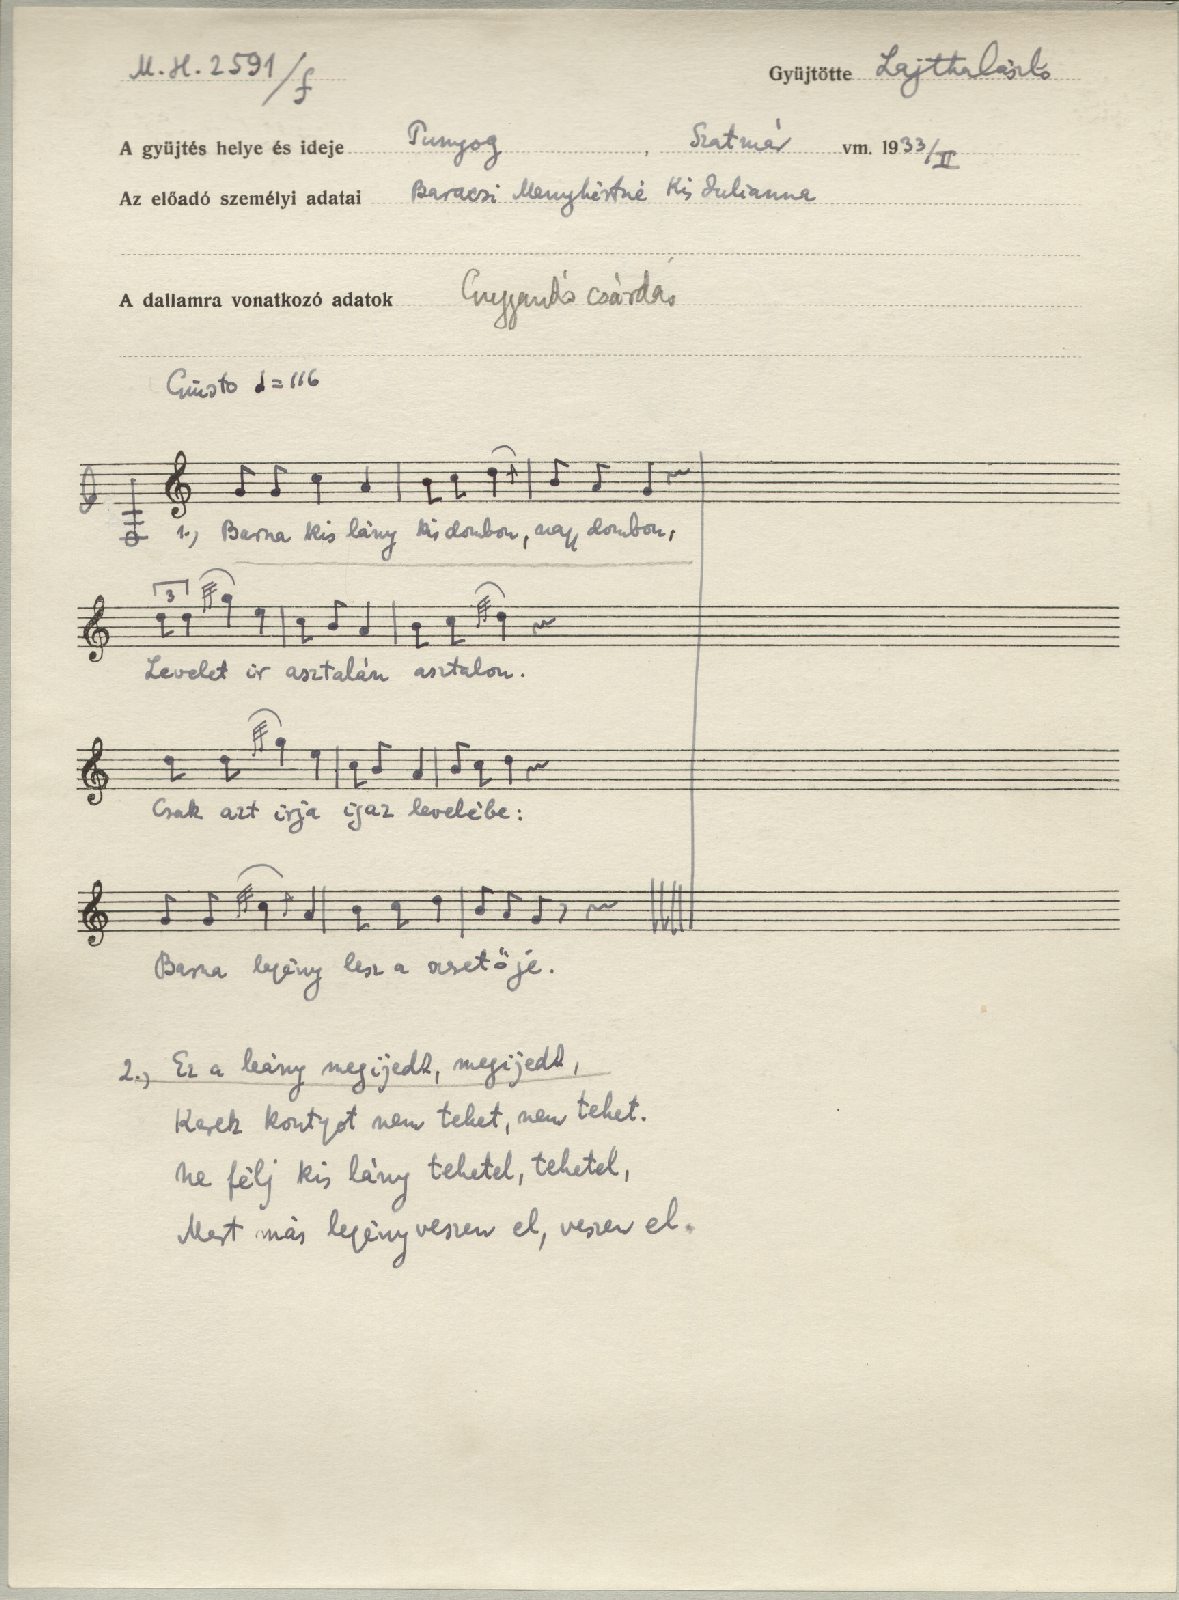 M. H. 2591/f
Gyüjtötte Lajtha László
A gyüjtés helye és ideje Punyog, Szatmár vm. 1933/II
Az előadó személyi adatai Baracsi Menyhértné Kis Julianna
A dallamra vonatkozó adatok csárdás
Giusto ♩=116
1., Barna kis lány kis dombon, nagy dombon,
3
Levelet ir asztalán asztalon.
Csak azt irja igaz levelébe:
Barna legény lesz a szeretője.
2., Ez a leány megijedt, megijedt,
Kerek kontyot nem tehet, nem tehet.
Ne félj kis lány tehetel, tehetel,
Mert más legény veszen el, veszen el.